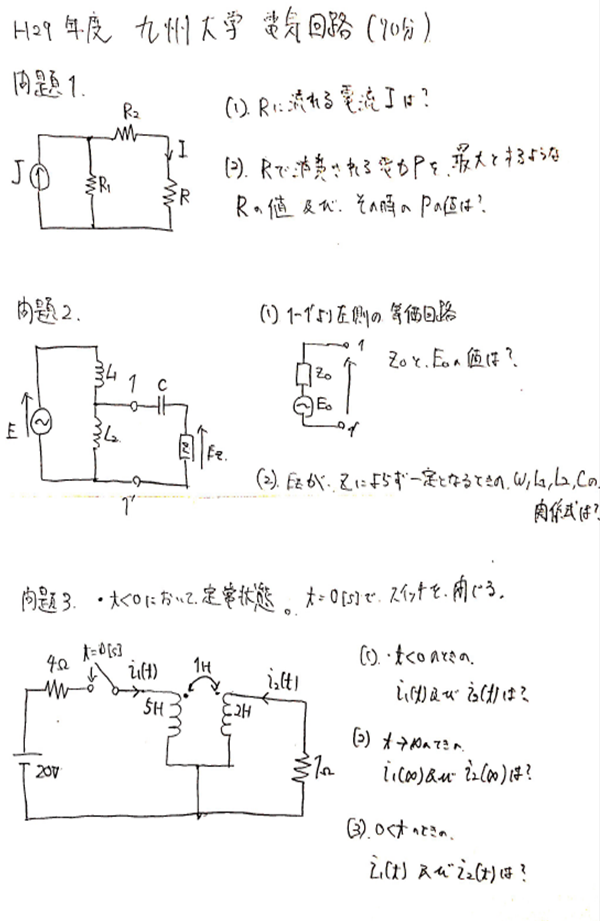 H29年度 九州大学 電気回路(90分)
問題1.
(1). Rに流れる電流Iは?
J
R1
R2
I
R
(2). Rで消費される電力Pを、最大とするような
Rの値 及び、その時のPの値は?
問題2.
(1) 1-1'より左側の等価回路
E
L1
L2
1
C
Z
Ez
1'
Z0
E0
1
1'
Z0と、E0の値は?
(2). Ezが、Zによらず一定となるときの、W, L1, L2, Cの
関係式は?
問題3. ・t<0において定常状態。t=0[s]で、スイッチを、閉じる。
4Ω
t=0[s]
i1(t)
1H
i2(t)
5H
2H
20V
1Ω
(1). ・t<0のときの、
i1(t)及び i2(t)は?
(2) t→∞のときの、
i1(∞)及び i2(∞)は?
(3). 0<tのときの、
i1(t) 及び i2(t)は?